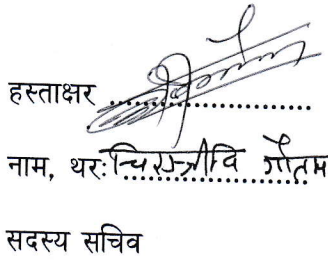 हस्ताक्षर ..............................
नाम, थर: चिरञ्जीवि गौतम
सदस्य सचिव